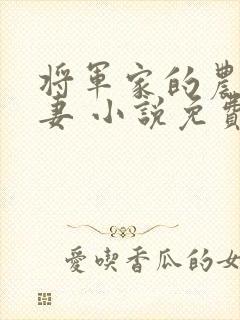 將軍家的農
妻 小說免費
愛喫香瓜的女